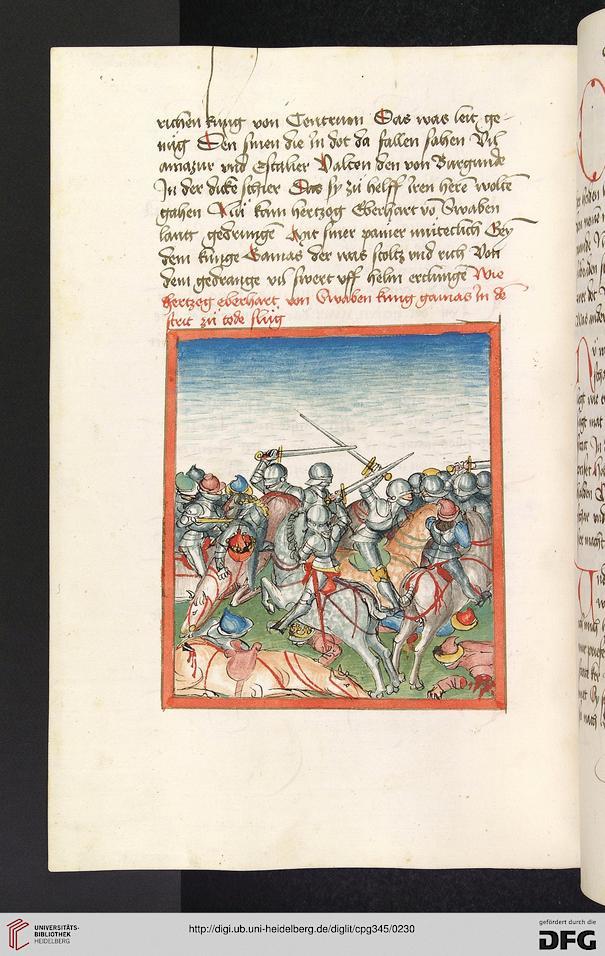 richen kung von Centrium Das was leit ge-
nüg Den sinen die in dot da fallen sahen Vil
amazur vnd Escalier Valten den von Burgunde
In der dicke schier Das sy zü helff iren here wolte
gahen Nü kam hertzog Eberhart vō Swaben
lant gedrunge Mit siner panier müteclich Gey
dem kunge Gamas der was stoltz vnd rich Von
dem gedrange vil swert vff helm erclunge Wie
hertzog eberhart von Swaben kung gamas in de
strit zü tode slüg
UNIVERSITÄTS-
BIBLIOTHEK
HEIDELBERG
http://digi.ub.uni-heidelberg.de/diglit/cpg345/0230
gefördert durch die
DFG